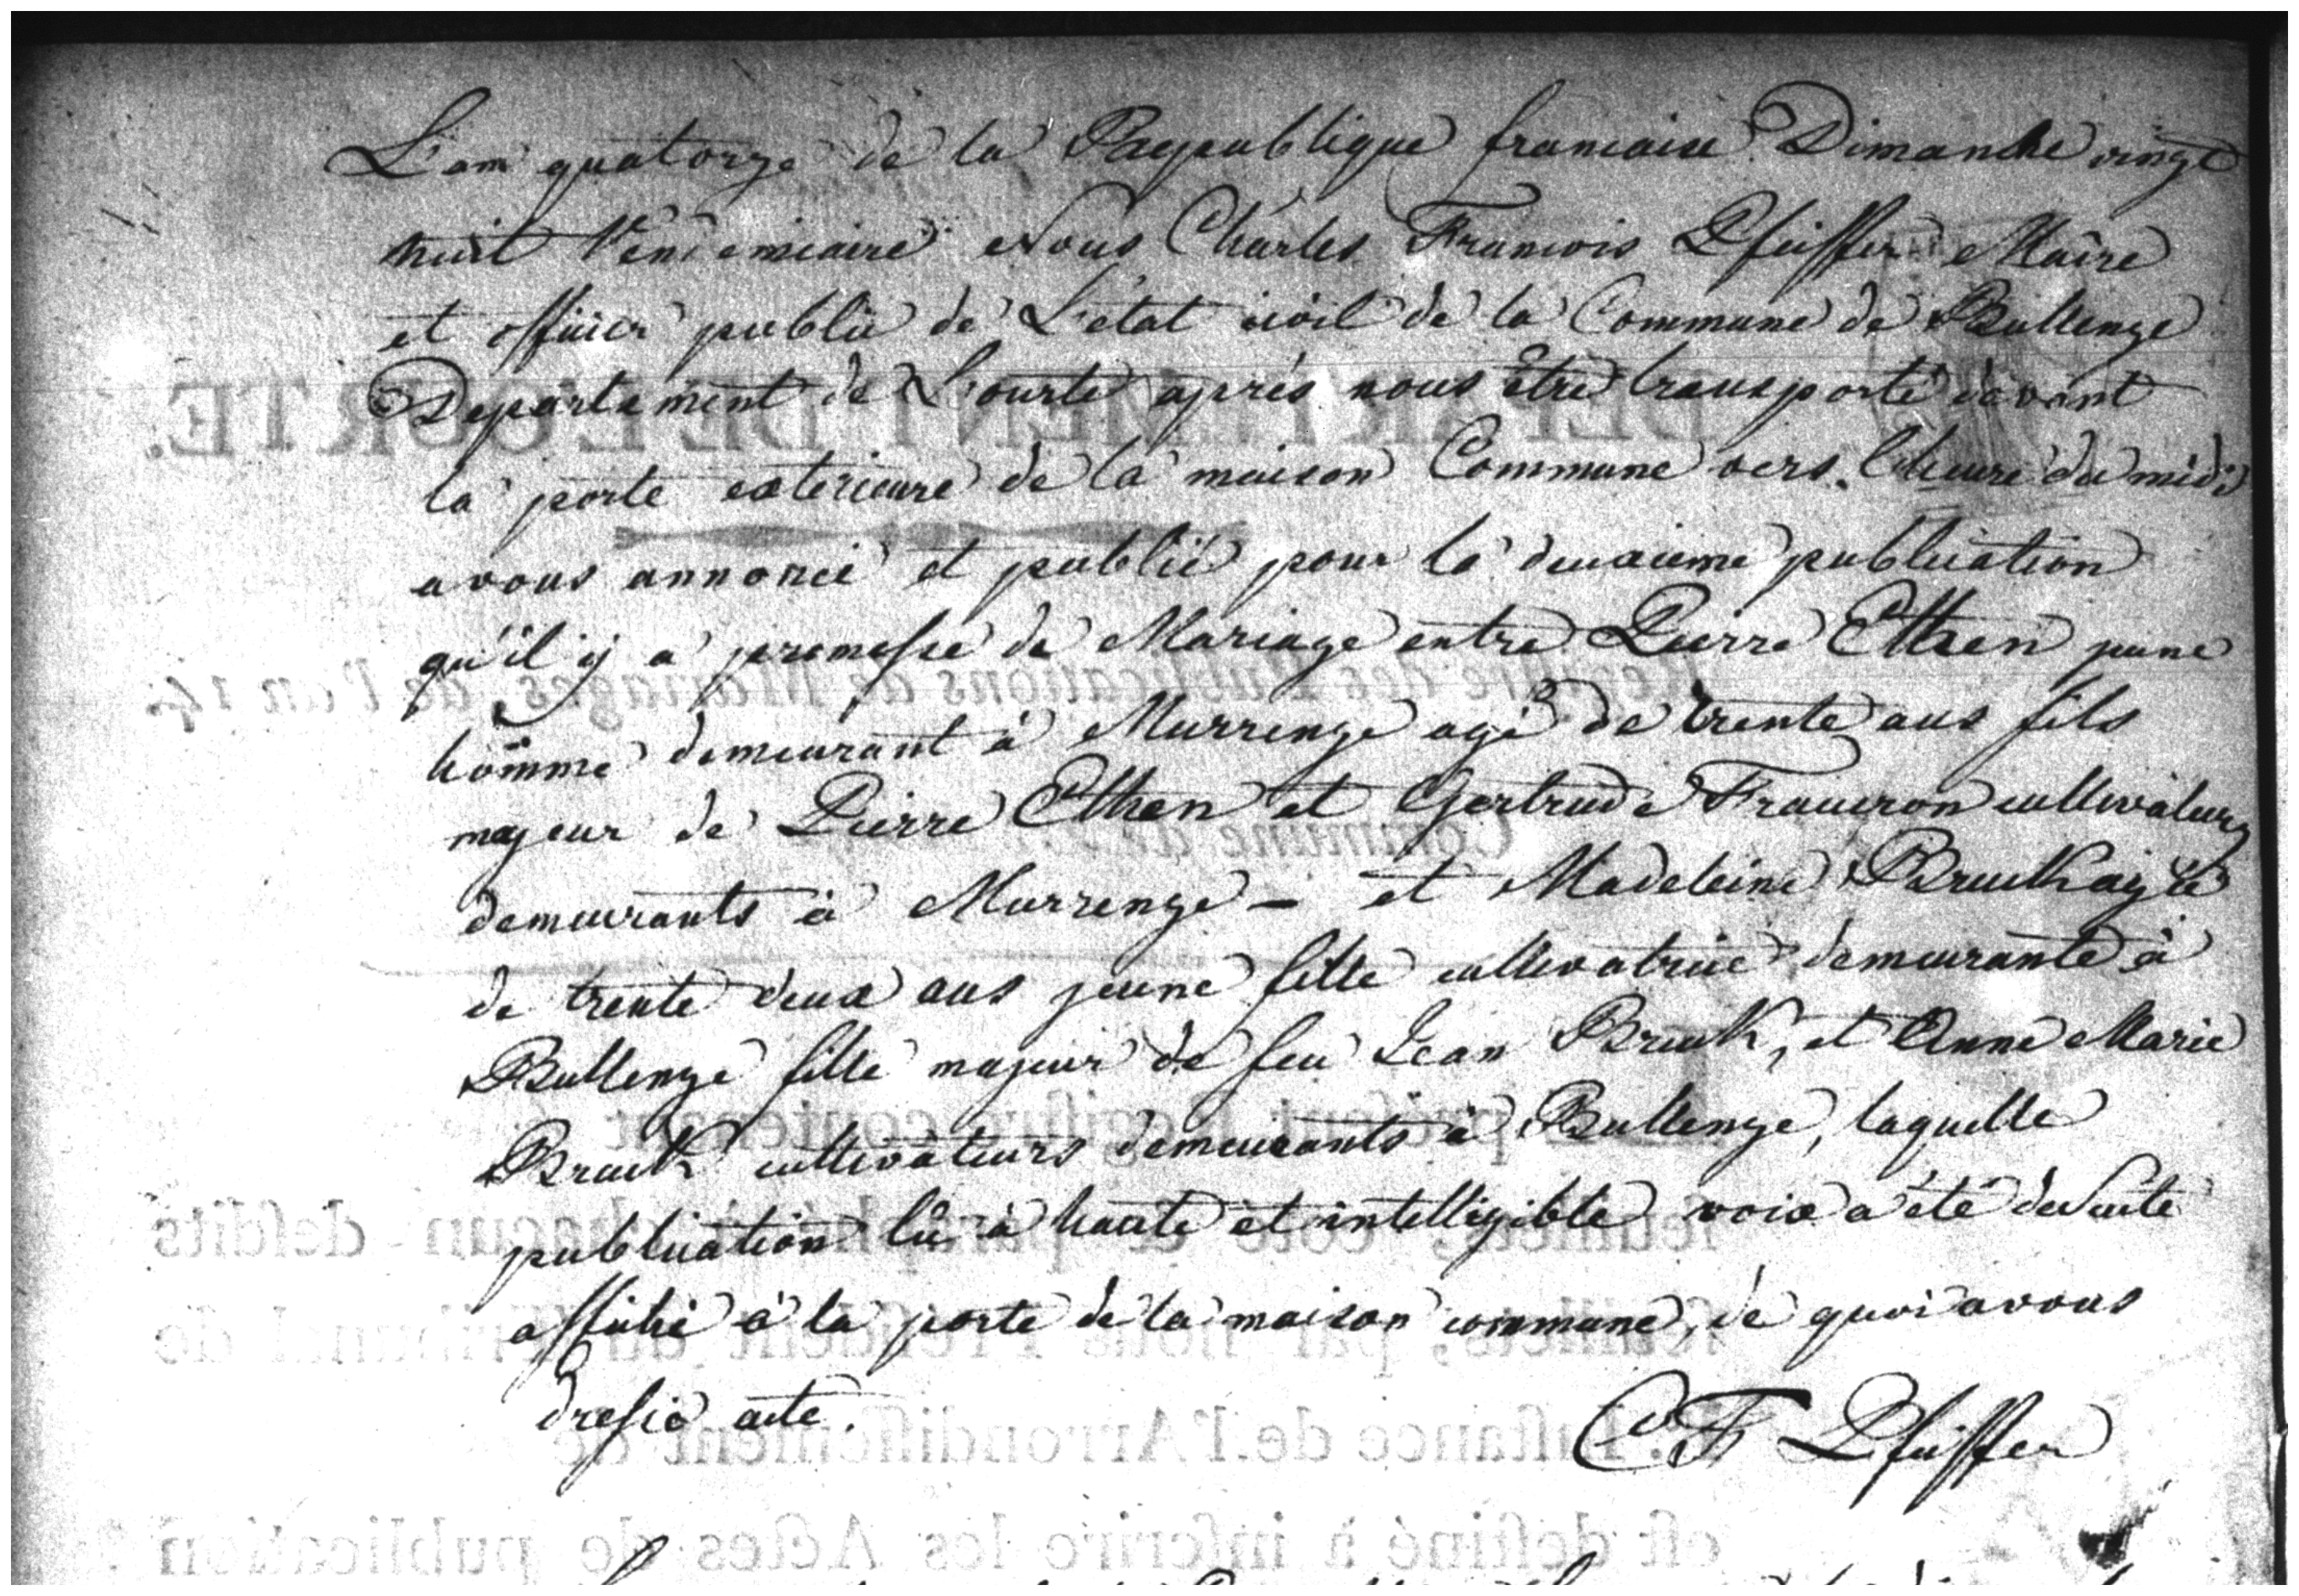 L'an quatorze de la Raepublique francaise Dimanche vingt
huit Vendemiaire Nous Charles Francois Pfeiffer Maire
et officier public de L'etat civil de la Commune de Bullenge
Departement de L'ourte après nous être transporté devant
la porte exterieure de la maison Commune vers l'heure du midi
avons annoncé et publié pour la deuxieme publication
qu'il y a promesse de Mariage entre Pierre Ethen jeune
homme demeurant à Murrenge agé de trente ans fils
majeur de Pierre Ethen et Gertrude cultivateurs
demeurants à Murrenge - et Madeleine Bruck agée
de trente deux ans jeune fille cultivatrice demeurante à
Bullenge fille majeur de feu Jean Bruck, et Anne Marie
Bruck cultivateurs demeurants à Bullenge, laquelle
publication lû à haute et intelligible voix a été de suite
affiché à la porte de la maison commune, de quoi avons
dressé acte.
CF Pfeiffer